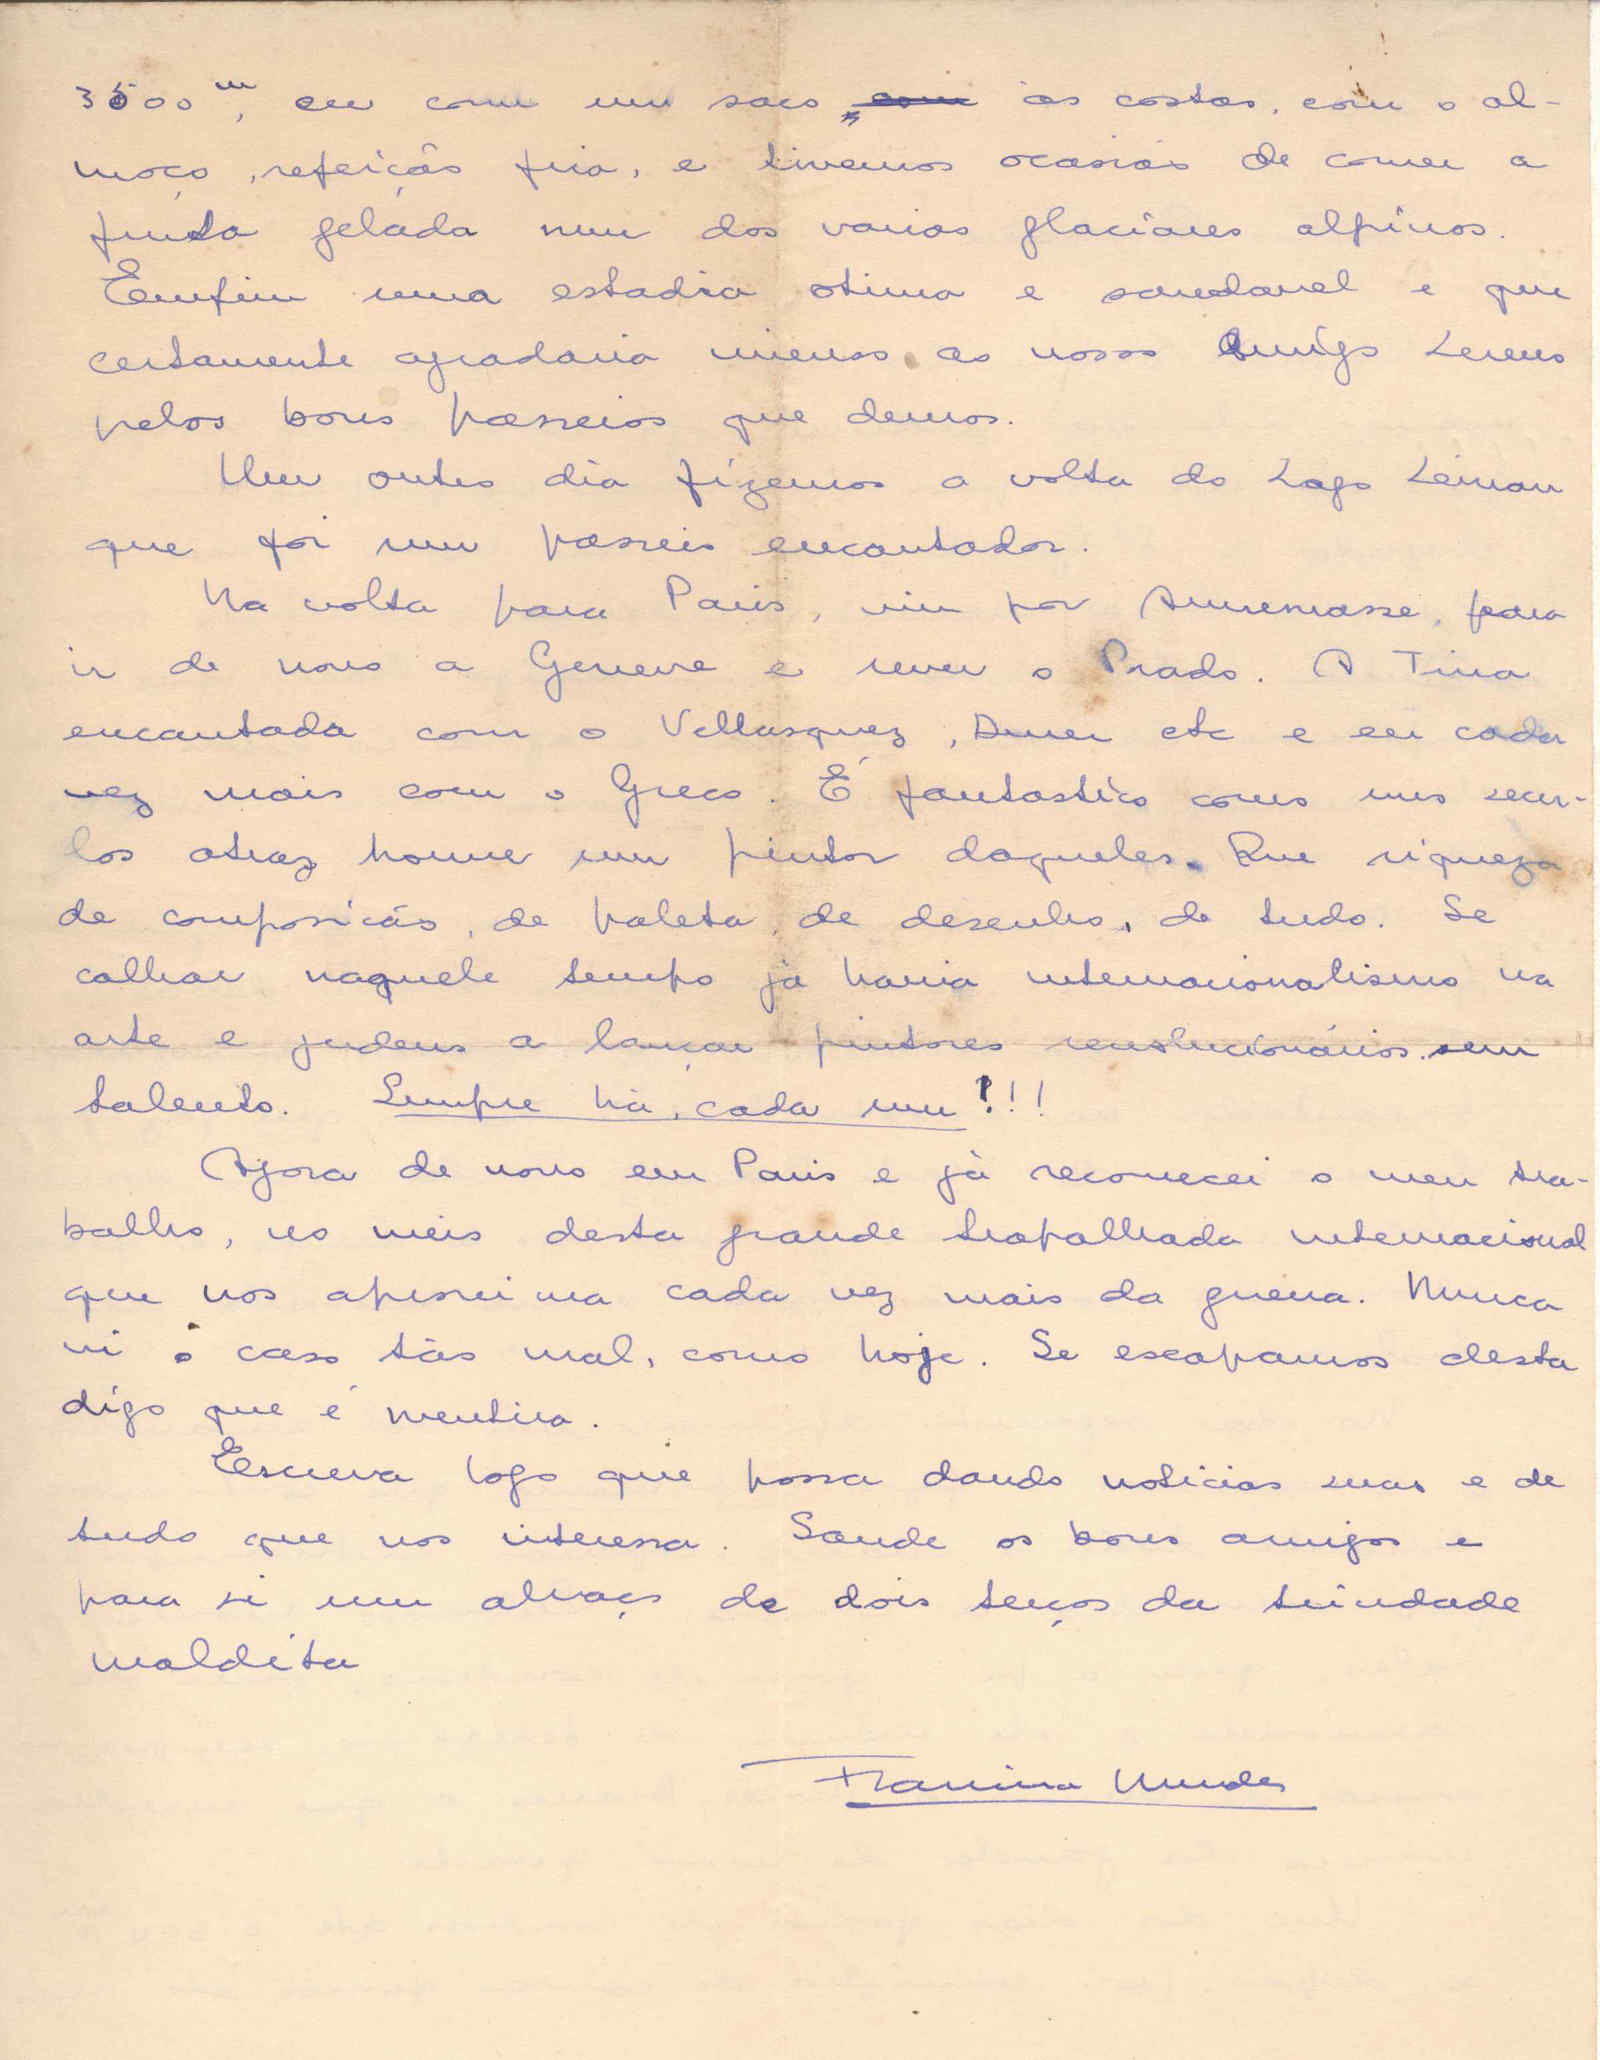 3500m, eu com um saco com ás costas, com o al-
moço, refeição fria, e tivemos ocasião de comer a
fruta gelada num dos varios glaciares alpinos.
Emfim uma estadia otima e saudavel e que
certamente agradaria imenso ao nosso Amigo Lereno
pelos bons passeios que demos.
Um outro dia fizemos a volta do Lago Léman
que foi um passeio encantador.
Na volta para Paris, vim por Annemasse, para
ir de novo a Geneve e rever o Prado. A Tina
encantada com o Vellasquez, Durer etc e eu cada
vez mais com o Greco. É fantastico como uns secu-
los atraz houve um pintor daqueles. Que riqueza
de composicão, de paleta, de desenho, de tudo. Se
calhar naquele tempo já havia internacionalismo na
arte e judeus a lançar pintores revolucionários sem
talento. Sempre há, cada um!!!
Agora de novo em Paris e já recomecei o meu tra-
balho, no meio desta grande trapalhada internacional
que nos aproxima cada vez mais da guerra. Nunca
vi o caso tão mal, como hoje. Se escapamos desta
digo que é mentira.
Escreva logo que possa dando noticias suas e de
tudo que nos interessa. Saude os bons amigos e
para si um abraço de dois terços da trindade
maldita
Mendes